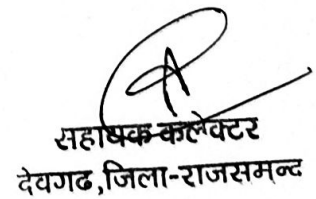 सहायक कलेक्टर
देवगढ,जिला-राजसमन्द